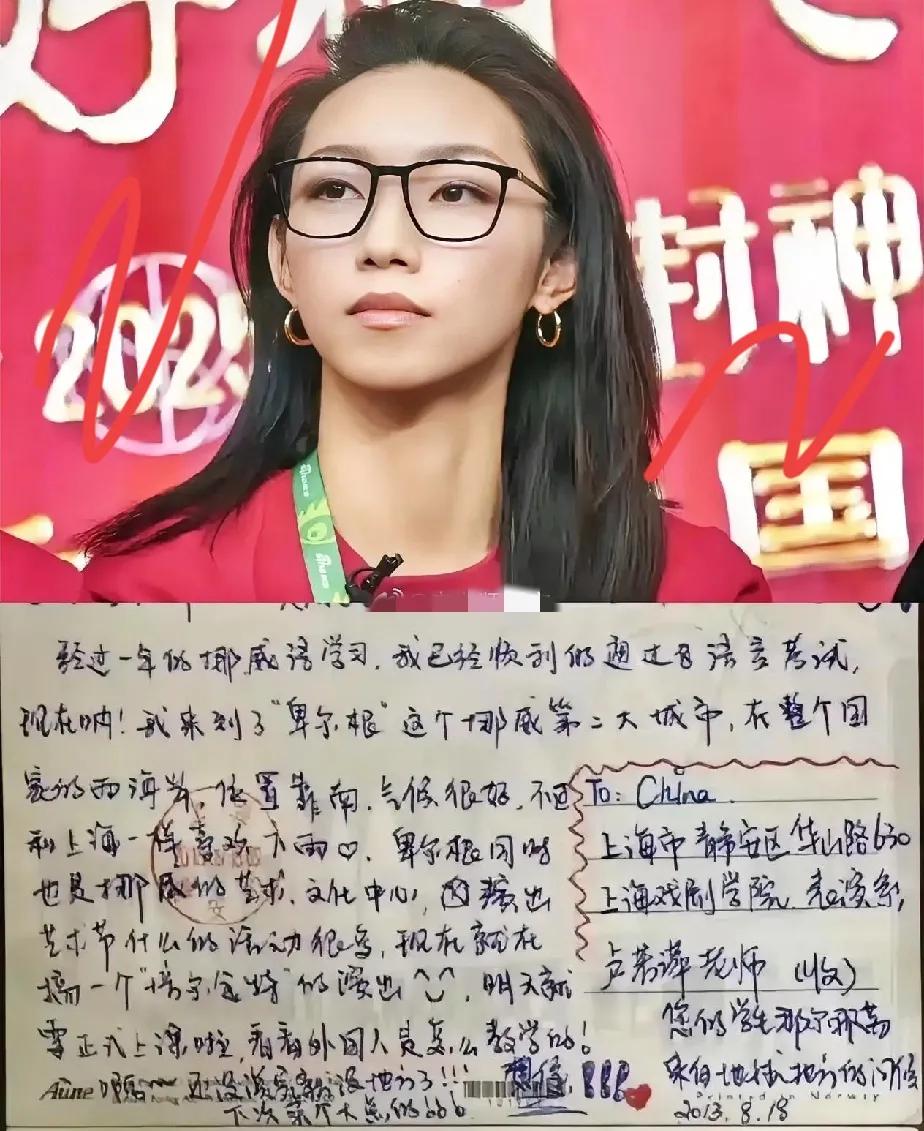 好
2025
封神
国
经过一年的挪威语学习，我已经顺利的通过了语言考试，
现在呐！我来到了“卑尔根”这个挪威第二大城市，在整个国
家的西海岸，位置靠南，气候很好，不过
和上海一样喜欢下雨♡．卑尔根同时
也是挪威的艺术、文化中心，因演出
艺术节什么的活动很多，现在就在
搞一个“培尔金特”的演出^‿^，明天就
要正式上课啦，看看外国人是怎么教学的！
啊 还没说完就没地方了!!!
To: China.
上海市静安区华山路630
上海戏剧学院 表演系，
老师 （收）
您的学生那尔那茜
来自地球 的问候
2013.8.18
Aune
Printed in Norway